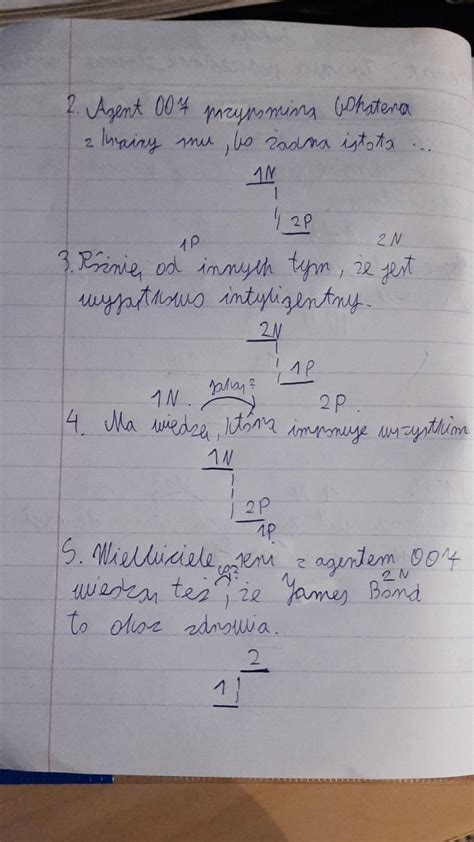 2. Agent 007 przypomina bohatera
z krainy snu, bo żadna istota ...
1N
2P
1P 2N
3. Różnię od innych tym, że jest
wyjątkowo inteligentny.
2N
1P
1N. jaką? 2P.
4. Ma wiedzę, która imponuje wszystkim
1N
2P
1P.
5. Wielbiciele serii z agentem 007
co? 2N
wiedzą też, że James Bond
to okaz zdrowia.
2
1